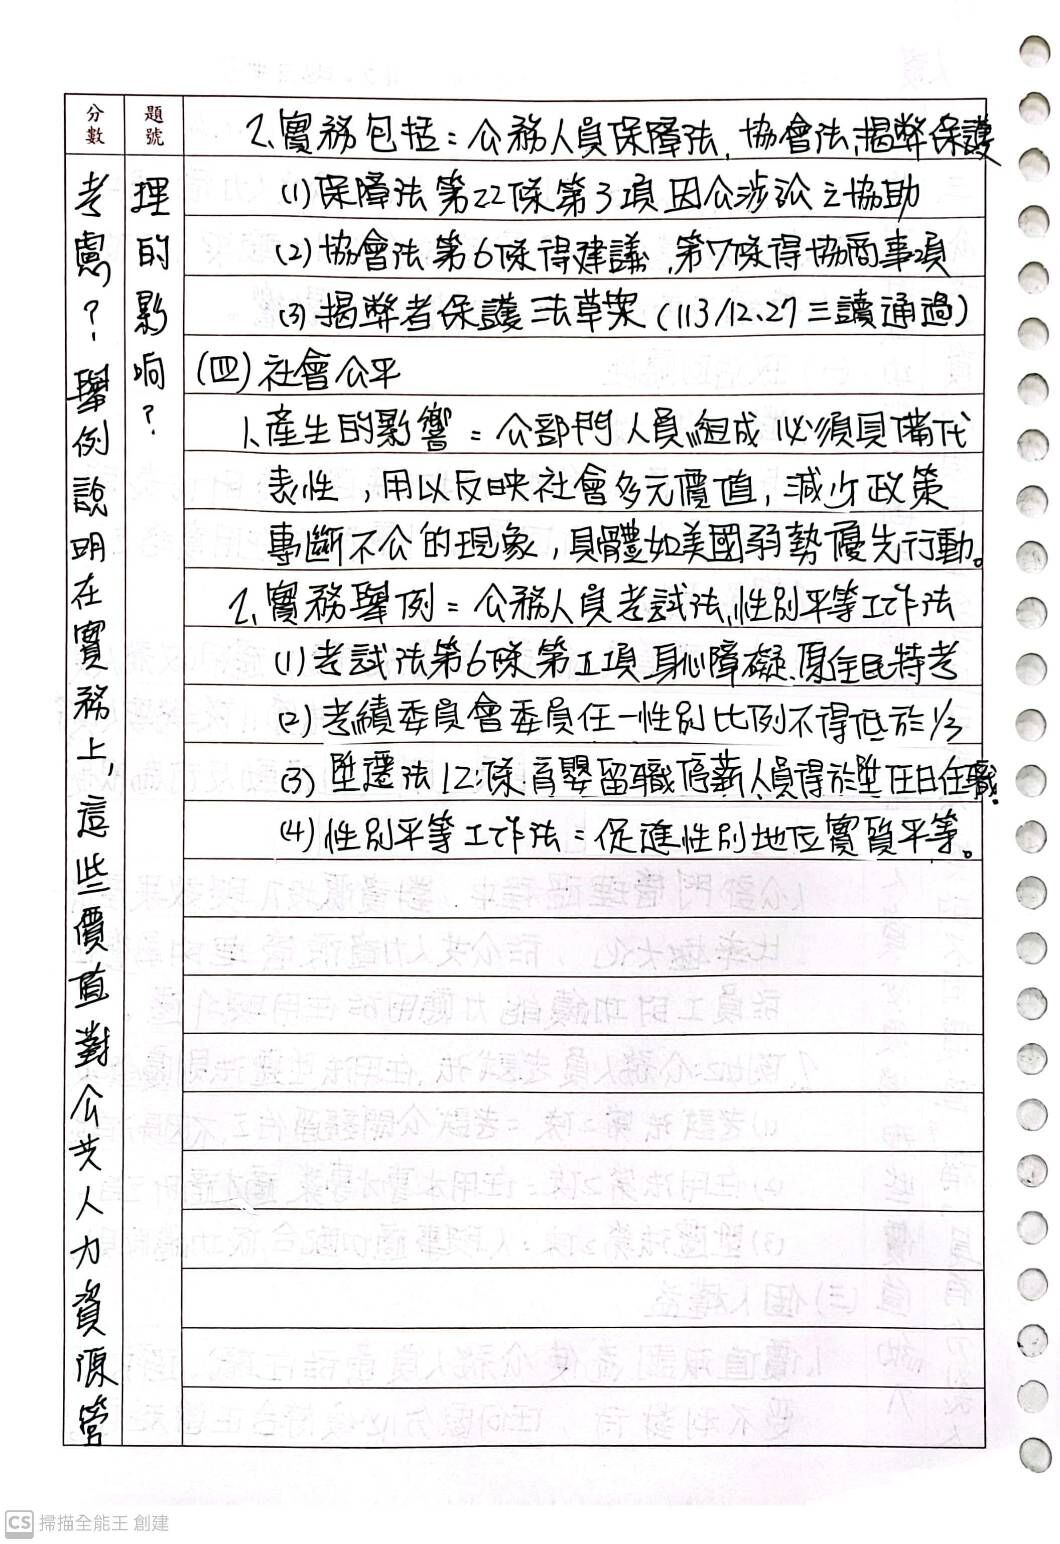 分數
題號
考慮?舉例說明在實務上,這些價值對公共人力資源營
理的影响?
2.實務包括:公務人員保障法、協會法、揭弊保護
(1)保障法第22條第3項因公涉訟之協助
(2)協會法第6條得建議、第7條得協商事項
(3)揭弊者保護法草案(113/12.27三讀通過)
(四)社會公平
1.產生的影響:公部門人員組成必須具備代
表性,用以反映社會多元價值,減少政策
專斷不公的現象,具體如美國弱勢優先行動。
2.實務舉例:公務人員考試法、性別平等工作法
(1)考試法第6條第1項身心障礙、原住民特考
(2)考績委員會委員任一性別比例不得低於1/3
(3)陞遷法12條育嬰留職停薪人員得於陞任日任職.
(4)性別平等工作法:促進性別地位實質平等。
CS 掃描全能王 創建